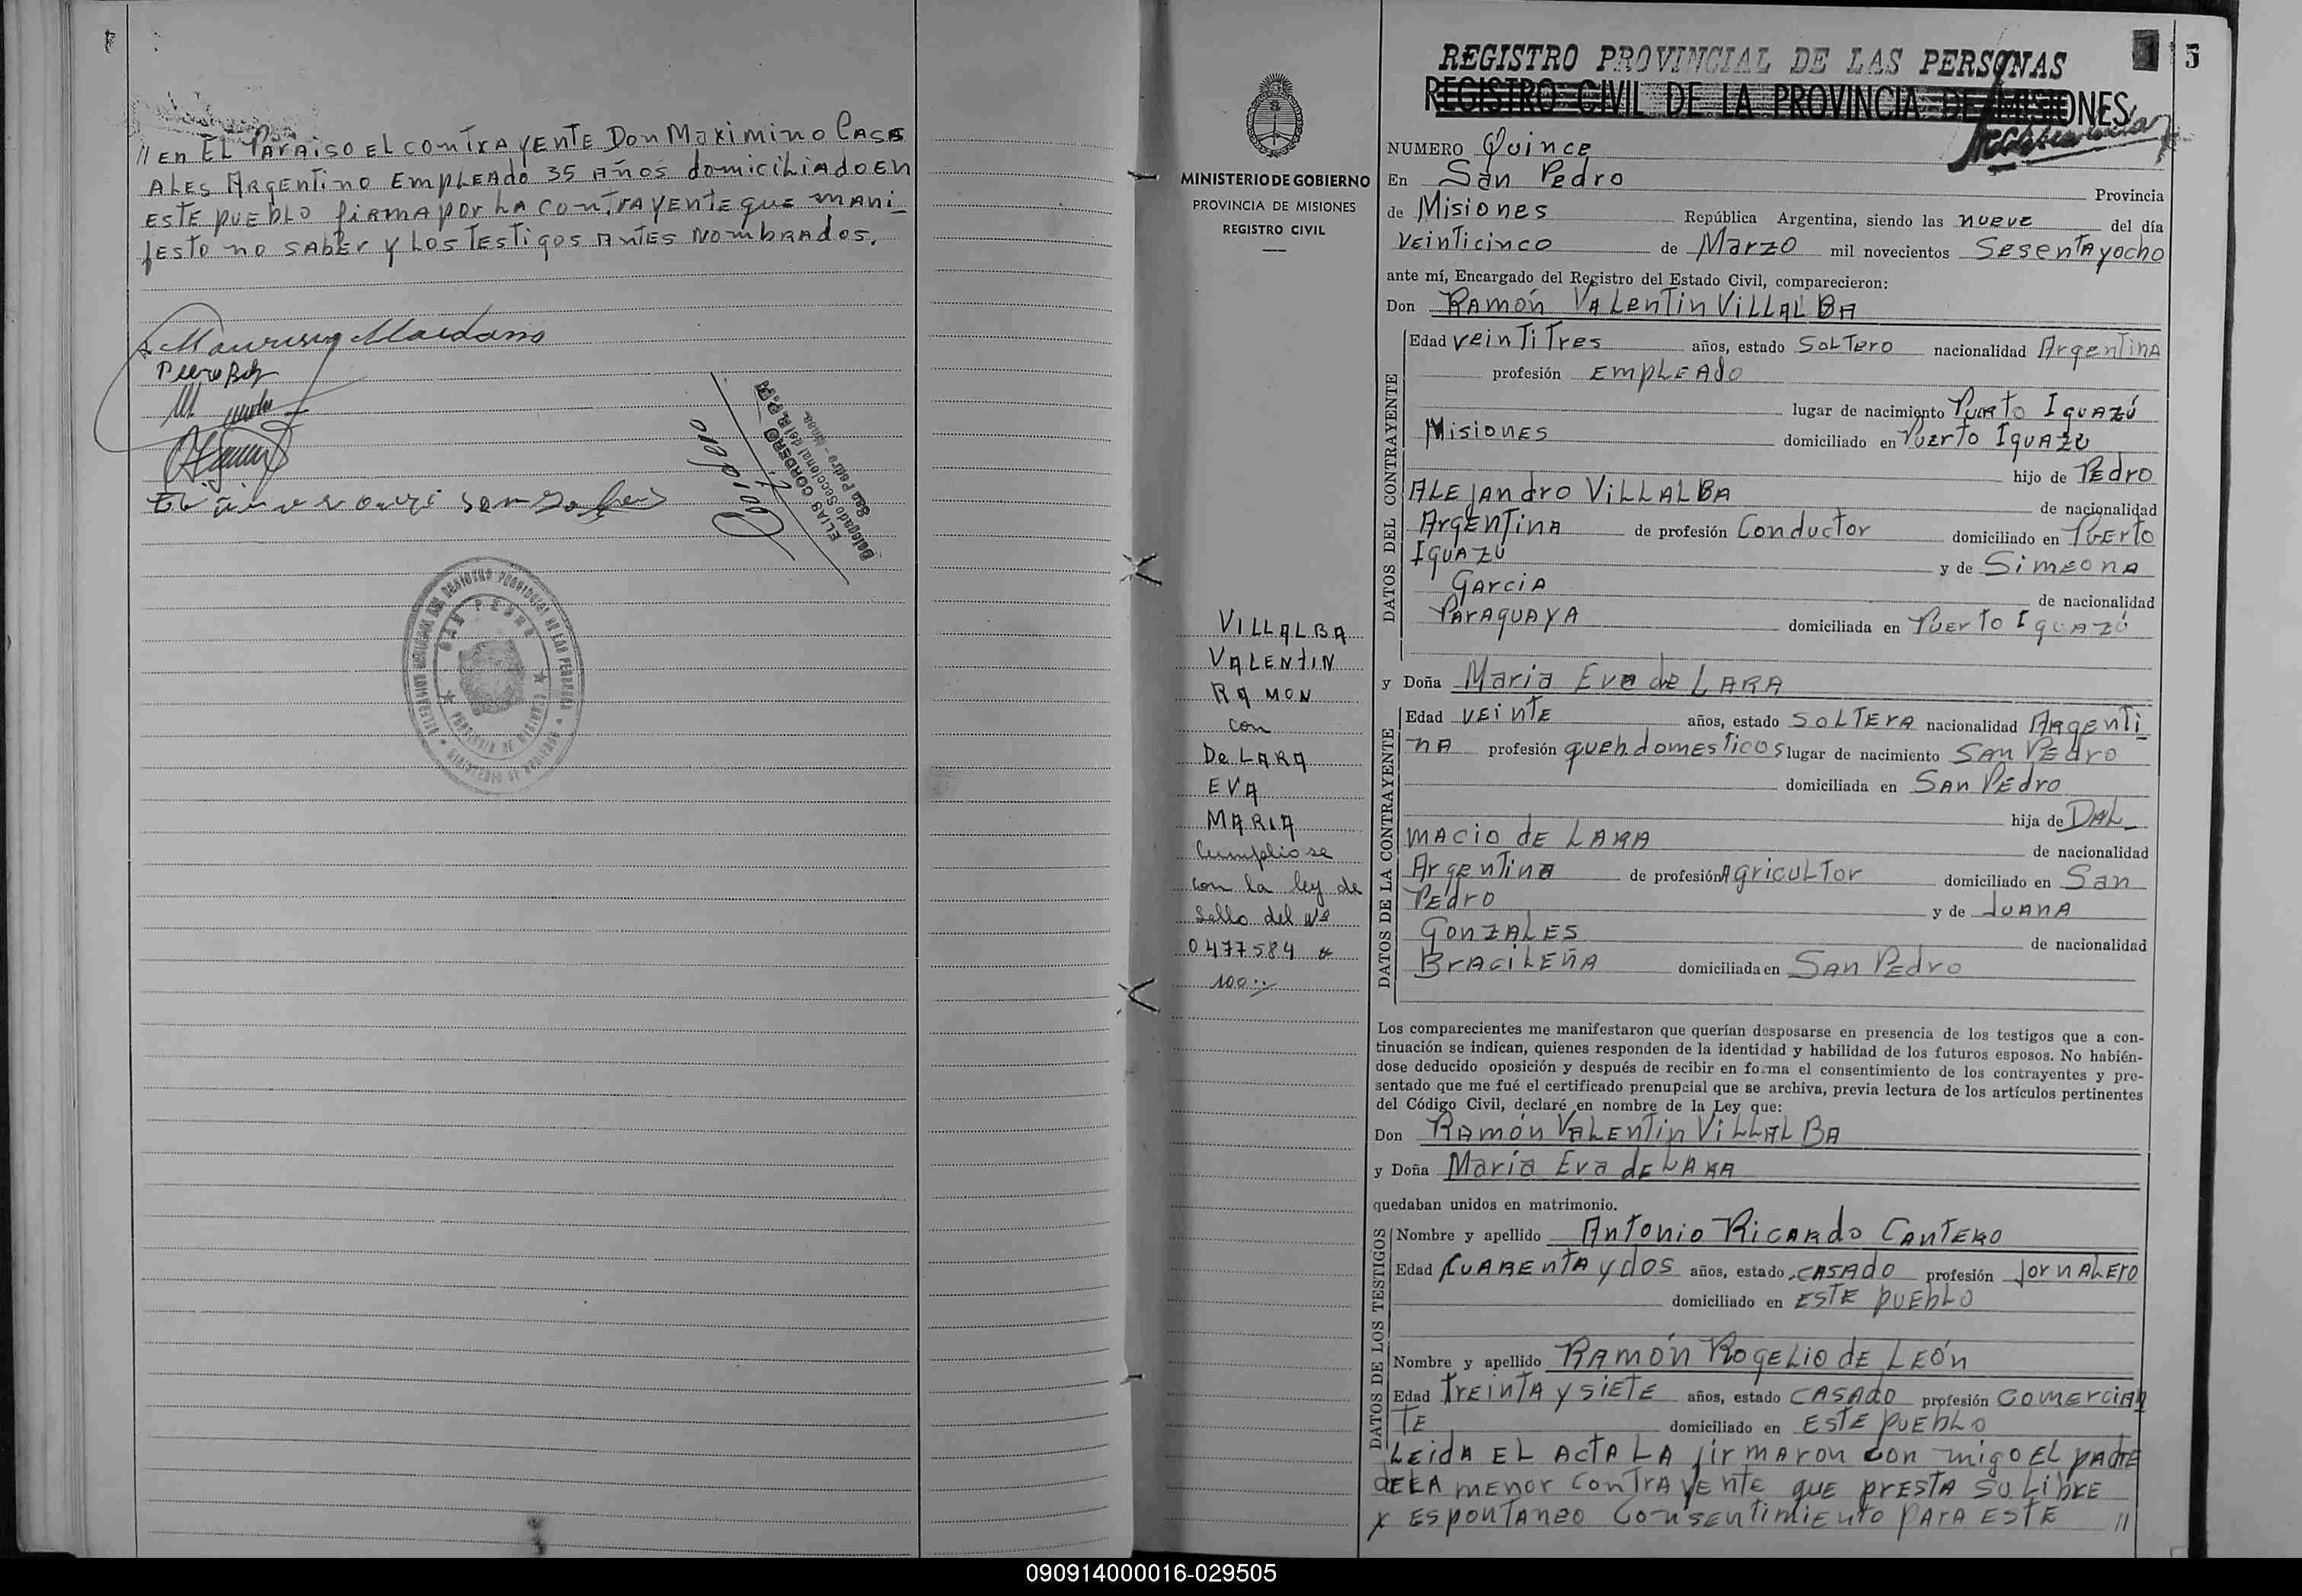 // En EL PARAiso El contrayente Don Maximino Casa
ALES ARgentino EmpLEAdo 35 Años domiciliado en
ESTE puebLo firma por LA contrayente que mani_
festo no SAbEr y Los TEstigos Antes Nombrados.
ELIAS CORDERO
Delegado Seccional del R.P.P.
San Pedro - Mnes.
SAN PEDRO
5
REGISTRO PROVINCIAL DE LAS PERSONAS
REGISTRO CIVIL DE LA PROVINCIA DE MISIONES
MINISTERIO DE GOBIERNO
PROVINCIA DE MISIONES
REGISTRO CIVIL
VILLALBA
VALENtIN
RAMON
con
De LARA
EVA
MARIA
Cumpliose
con la ley de
Sello del Nº
0477584
100
NUMERO Quince
En San Pedro Provincia
de Misiones República Argentina, siendo las nueve del día
Veinticinco de Marzo mil novecientos Sesentayocho
ante mí, Encargado del Registro del Estado Civil, comparecieron:
Don RAmón VALentin ViLLALBA
DATOS DEL CONTRAYENTE
Edad veintitres años, estado SoLTero nacionalidad Argentina
profesión EmpLEAdo
lugar de nacimiento Puerto Iguazú
Misiones domiciliado en Puerto Iguazú
hijo de Pedro
ALEjandro ViLLALBA de nacionalidad
Argentina de profesión Conductor domiciliado en Puerto
Iguazú y de Simeona
Garcia de nacionalidad
PARAguAyA domiciliada en Puerto Iguazú
y Doña Maria Eva de LARA
DATOS DE LA CONTRAYENTE
Edad veinte años, estado SoLTErA nacionalidad Argenti_
na profesión queh.domesticos lugar de nacimiento SAn PEdro
domiciliada en SAn PEdro
hija de DAL_
macio dE LARA de nacionalidad
Argentina de profesión AgricuLTor domiciliado en San
PEdro y de JuanA
GonzALES de nacionalidad
BrAciLEñA domiciliada en SAn PEdro
Los comparecientes me manifestaron que querían desposarse en presencia de los testigos que a con-
tinuación se indican, quienes responden de la identidad y habilidad de los futuros esposos. No habién-
dose deducido oposición y después de recibir en forma el consentimiento de los contrayentes y pre-
sentado que me fué el certificado prenupcial que se archiva, previa lectura de los artículos pertinentes
del Código Civil, declaré en nombre de la Ley que:
Don RAmón VALEntin ViLLALBA
y Doña María Eva dE LARA
quedaban unidos en matrimonio.
DATOS DE LOS TESTIGOS
Nombre y apellido Antonio RicARdo CAntERo
Edad CuArentA y dos años, estado CASAdo profesión JornALEro
domiciliado en ESTE puebLo
Nombre y apellido RAmón RogeLio dE LEón
Edad TreintA y siETE años, estado CASAdo profesión ComerciAn
TE domiciliado en ESTE puebLo
LEidA EL ActA LA firmaron con migo EL pAdrE
dE LA menor contrAyente que prestA su Libre
y Espontaneo Consentimiento pArA ESTE //
090914000016-029505